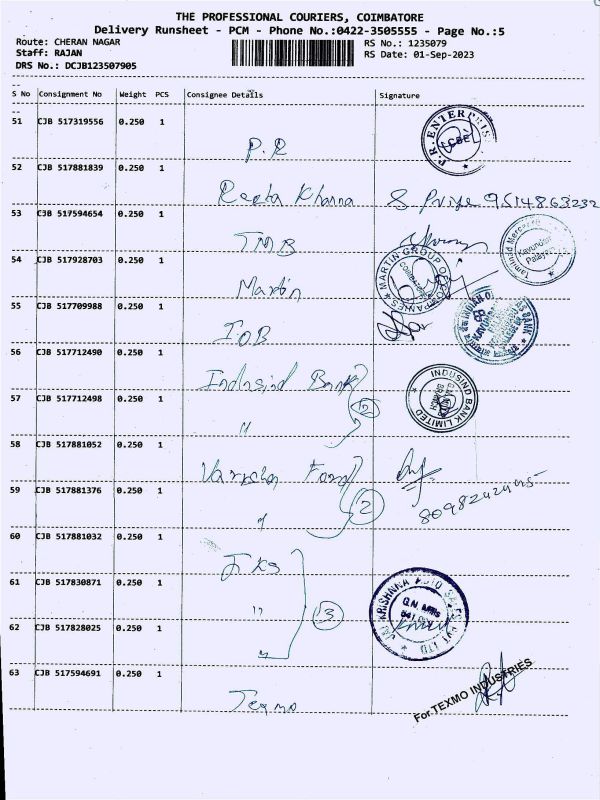 THE PROFESSIONAL COURIERS, COIMBATORE
Delivery Runsheet - PCM - Phone No.:0422-3505555 - Page No.:5
Route: CHERAN NAGAR RS No.: 1235079
Staff: RAJAN RS Date: 01-Sep-2023
DRS No.: DCJB123507905
S No Consignment No Weight PCS Consignee Details Signature
51 CJB 517319556 0.250 1 P.R P.R. ENTERPRIS
52 CJB 517881839 0.250 1 Reeta Khanna
53 CJB 517594654 0.250 1 TMB Tamilnad Mercantile Kavundam Palayam
54 CJB 517928703 0.250 1 Martin MARTIN GROUP OF COMPANIES COIMBATORE
55 CJB 517709988 0.250 1 IOB
56 CJB 517712490 0.250 1 Indusind Bank INDUSIND BANK LIMITED
57 CJB 517712498 0.250 1 " 2
58 CJB 517881052 0.250 1 Ford
59 CJB 517881376 0.250 1 " 2
60 CJB 517881032 0.250 1 JKS
61 CJB 517830871 0.250 1 " 3 JAI KRISHNAA AUTO SALES PVT LTD
62 CJB 517828025 0.250 1 "
63 CJB 517594691 0.250 1 Texmo For TEXMO INDUSTRIES